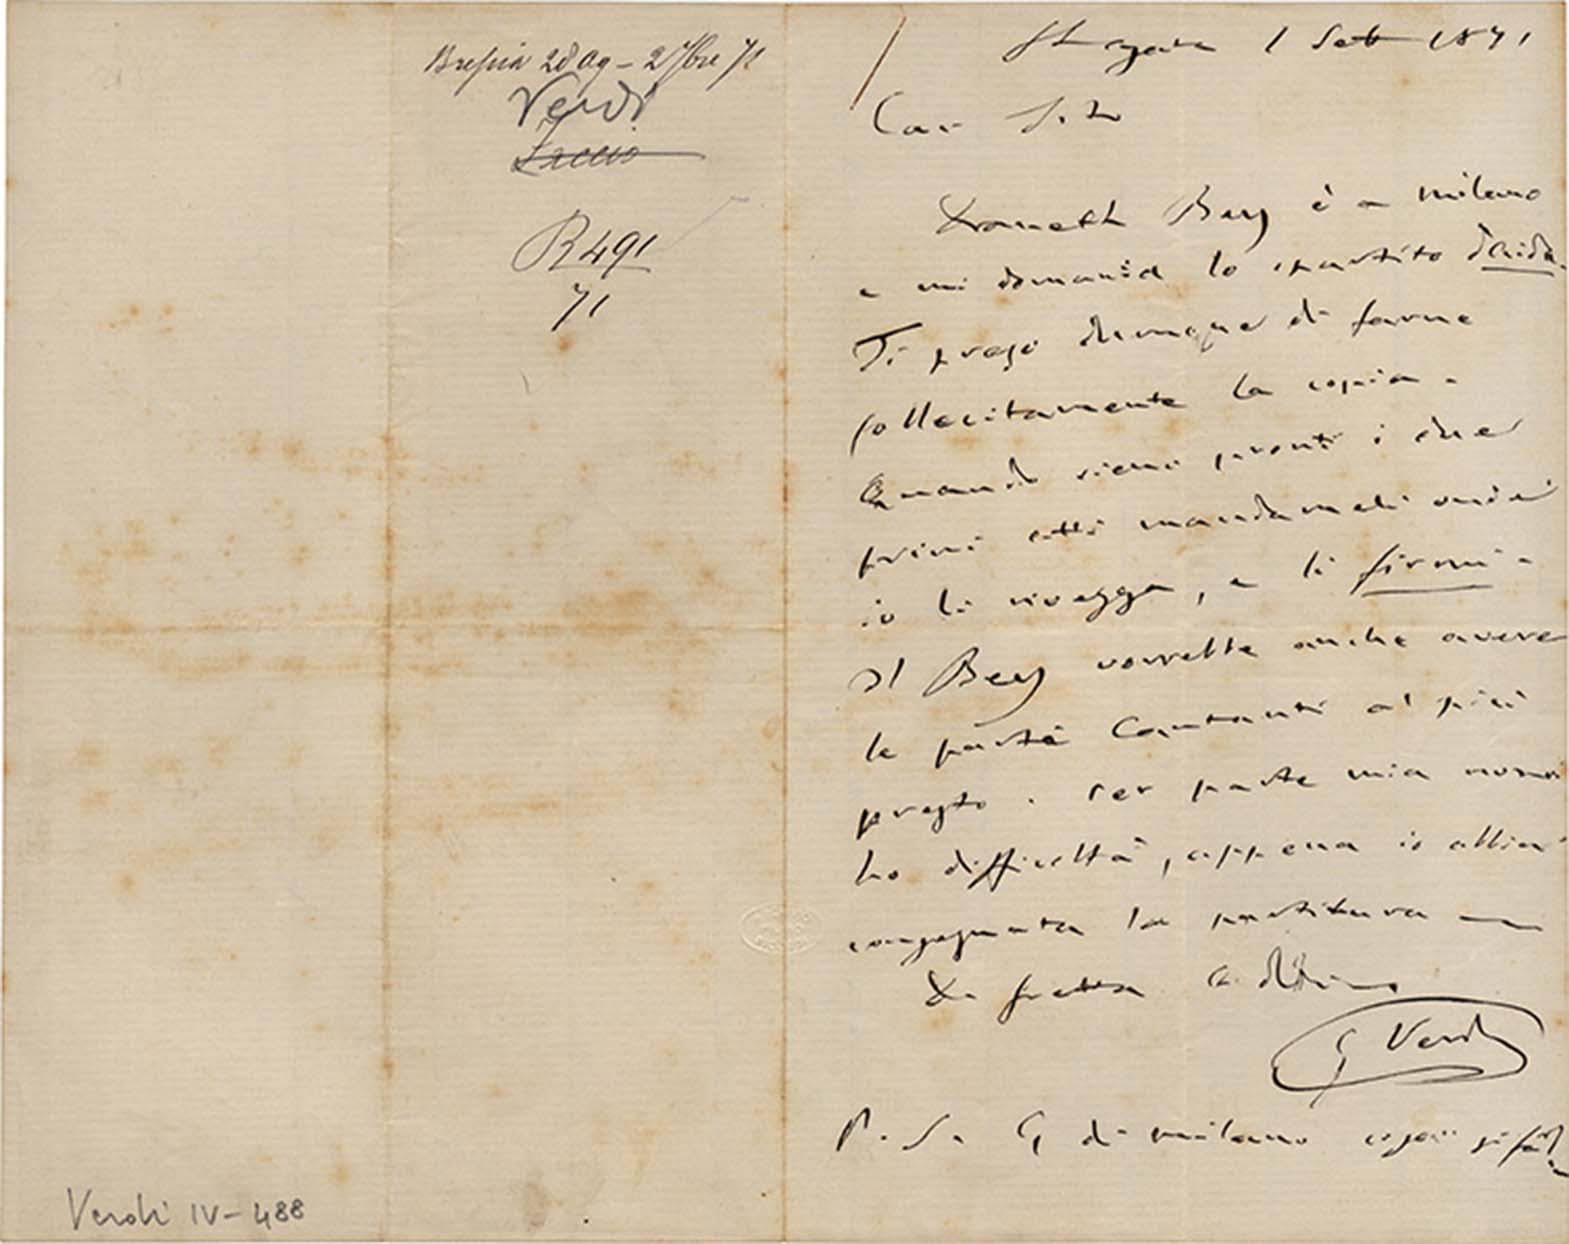 Brescia 28 Ag – 2 7bre 71
Verdi
Faccio
R 491
71
Verdi IV – 488
St Agata 1 Set 1871
Car Giulio
Draneth Bey è a Milano
e mi domanda lo spartito d'Aida.
Ti prego dunque di farne
sollecitamente la copia.
Quando sieno pronti i due
primi atti mandameli ond'
io li rivegga, e li firmi.
Il Bey vorrebbe anche avere
le parti Cantanti al più
presto. Per parte mia non
ho difficoltà, appena io abbia
consegnata la partitura
In fretta Addio
G Verdi
P.S. E di Milano cosa si fa?